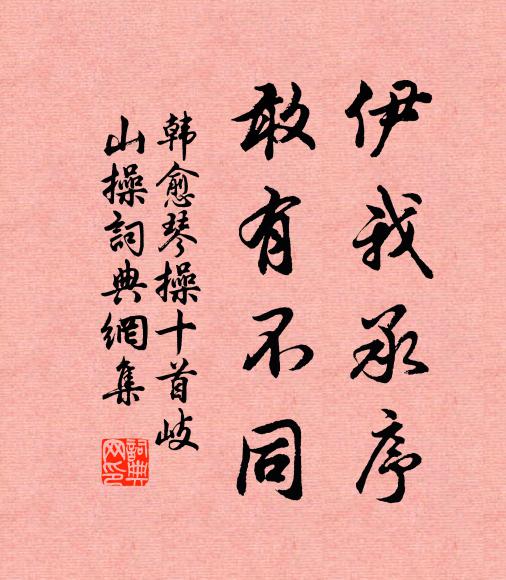 伊我承序
敢有不同
韓愈琴操十首岐
山操詞典網集
詞典
网印